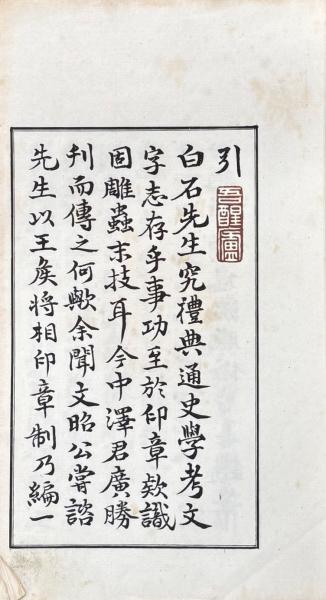 引
吾醒廬
白石先生究禮典通史學考文
字志存乎事功至於印章欵識
固雕蟲末技耳今中澤君廣勝
刊而傳之何歟余聞文昭公嘗諮
先生以王矦将相印章制乃編一